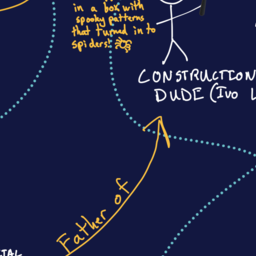 in a box with
spooky patterns
that turned in to
spiders!
CONSTRUCTION
DUDE (Ivo
Father of